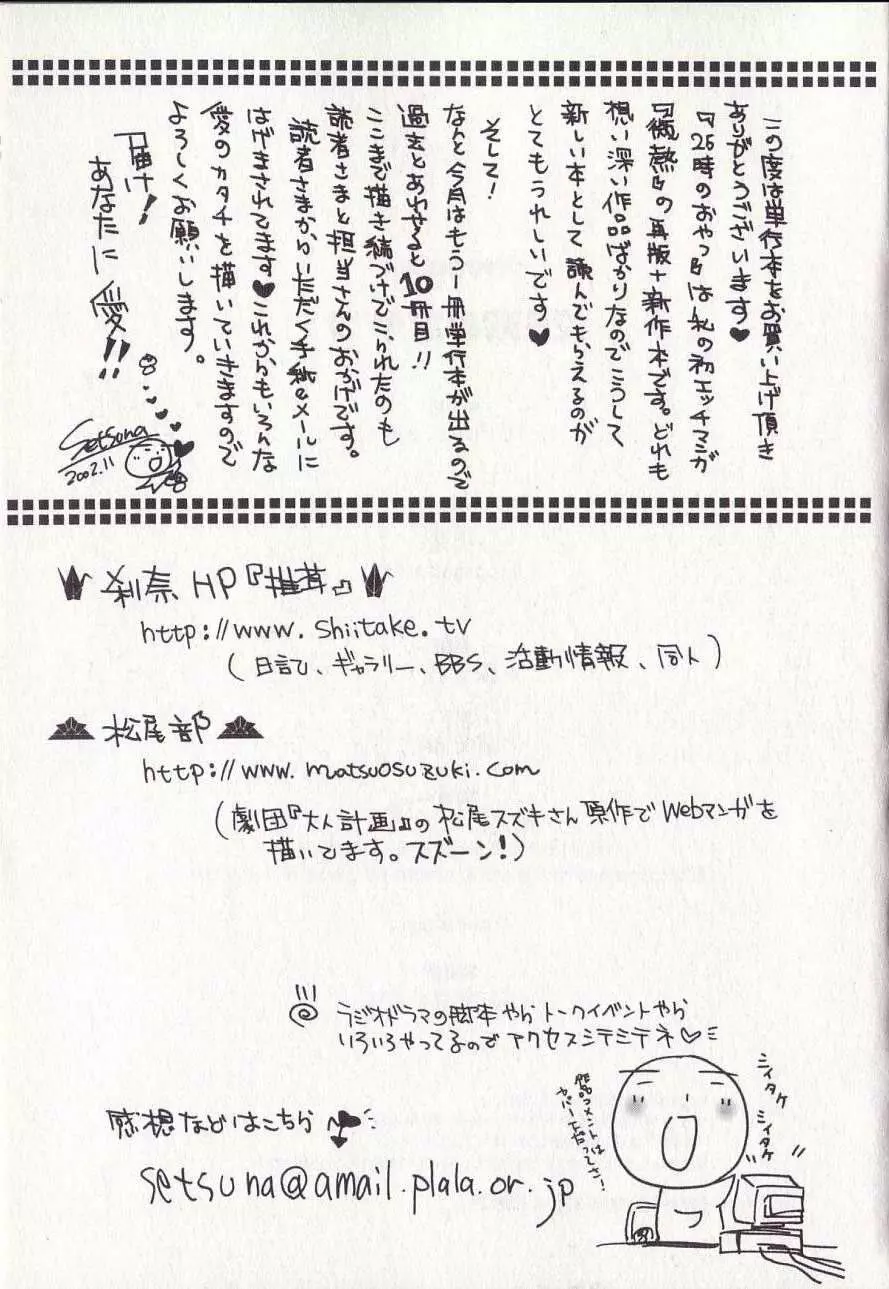 この度は単行本をお買い上げ頂き
ありがとうございます♥
『26時のおやつ』は私の初エッチマンガ
『微熱』の再版+新作本です。どれも
想い深い作品ばかりなのでこうして
新しい本として読んでもらえるのが
とてもうれしいです♥
そして!
なんと今月はもう一冊単行本が出るので
過去とあわせると10冊目!!
ここまで描き続けてこられたのも
読者さまと担当さんのおかげです。
読者さまからいただく手紙やメールに
はげまされてます♥これからもいろんな
愛のカタチを描いていきますので
よろしくお願いします。
届け!
あなたに愛!!
Setsuna
2002.11
刹奈 HP『椎茸』
http://www.shiitake.tv
(日記、ギャラリー、BBS、活動情報、同人)
松尾部
http://www.matsuosuzuki.com
(劇団『大人計画』の松尾スズキさん原作でWebマンガを
描いてます。スズーン!)
ラジオドラマの脚本やらトークイベントやら
いろいろやってるのでアクセスシテミテネ♡
シイタケ
シイタケ
作品コメントは
カバー下見て下さい!
感想などはこちら
setsuna@amail.plala.or.jp